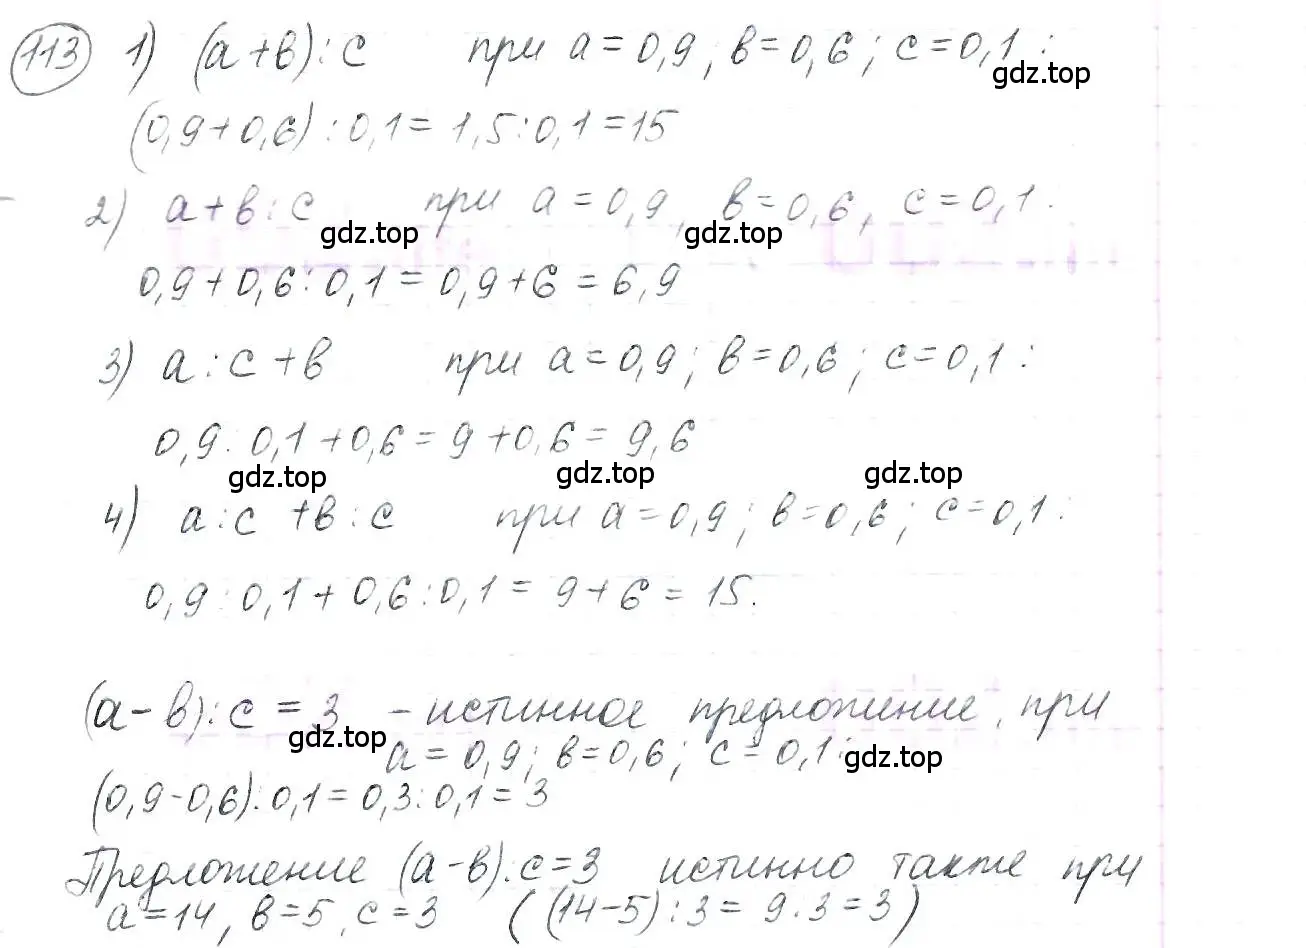 113 1) (а+в):с при а=0,9, в=0,6; с=0,1:
gdz.top
(0,9+0,6):0,1=1,5:0,1=15
2) а+в:с при а=0,9, в=0,6, с=0,1:
gdz.top gdz.top
0,9+0,6:0,1=0,9+6=6,9
3) а:с+в при а=0,9; в=0,6; с=0,1:
0,9:0,1+0,6=9+0,6=9,6
gdz.top gdz.top gdz.top
4) а:с+в:с при а=0,9; в=0,6; с=0,1:
0,9:0,1+0,6:0,1=9+6=15.
(а-в):с=3 - истинное предложение, при
gdz.top а=0,9; в=0,6; с=0,1: gdz.top
(0,9-0,6):0,1=0,3:0,1=3
Предложение (а-в):с=3 истинно также при
а=14, в=5, с=3 ((14-5):3=9:3=3)